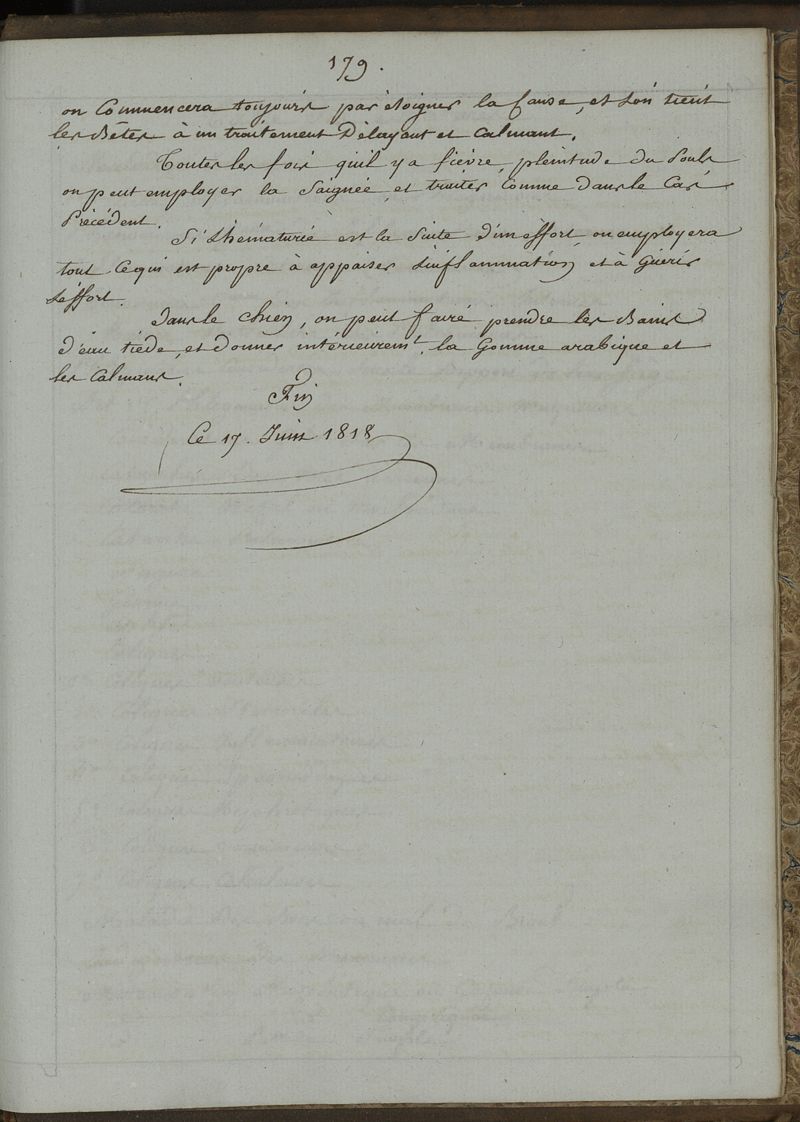 179.
on Commencera toujours par éloigner la Cause, et l'on tient
les Bêtes à un traitement Délayant et Calmant.
Toutes les fois qu'il y a fièvre, plénitude du Pouls
on peut employer la Saignée, et traiter Comme dans le Cas
Précédent.
Si L'hématurie est la Suite d'un effort, on employera
tout Ce qui est propre à appaiser L'inflammation et à Guérir
L'effort.
Dans le Chien, on peut faire prendre les Bains
d'eau tiède, et donner intérieurem.t la Gomme arabique et
les Calmans.
Fin
Ce 17. Juin 1818